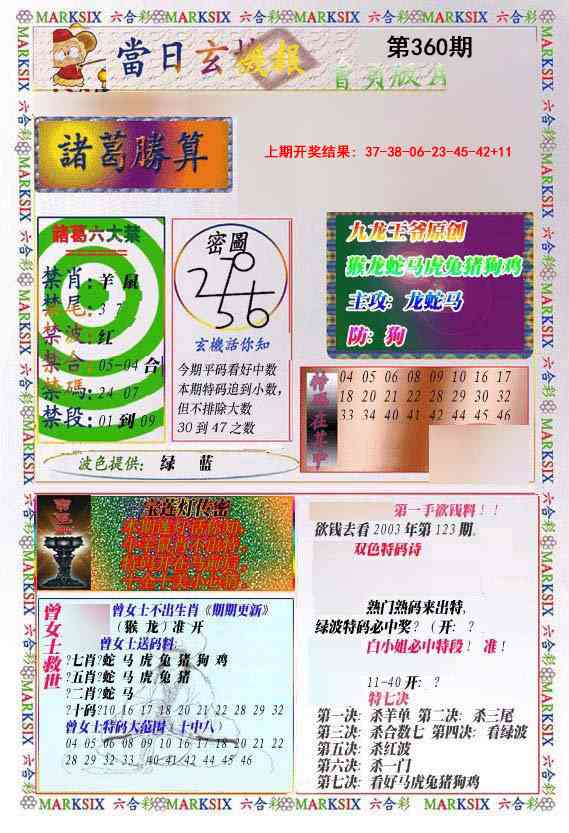 MARKSIX 六合彩 MARKSIX 六合彩 MARKSIX 六合彩 MARKSIX 六合彩
當日玄機報
第360期
首頁版A
諸葛勝算
上期开奖结果: 37-38-06-23-45-42+11
諸葛六大禁
禁肖: 羊 鼠
禁尾: 3 7
禁波: 红
禁合: 05-04 合
禁碼: 24 07
禁段: 01 到 09
密圖
玄機話你知
今期平码看好中数
本期特码追到小数,
但不排除大数
30 到 47 之数
九龙王爷原创
猴龙蛇马虎兔猪狗鸡
主攻: 龙蛇马
防: 狗
特码在其中
04 05 06 08 09 10 16 17
18 20 21 22 28 29 30 32
33 34 40 41 42 44 45 46
波色提供: 绿 蓝
宝莲灯传密
曾女士救世
曾女士不出生肖《期期更新》
(猴 龙) 准 开
曾女士送码料:
?七肖?蛇 马 虎 兔 猪 狗 鸡
?五肖?蛇 马 虎 兔 猪
?二肖?蛇 马
?十码?10 16 17 18 20 21 22 28 29 32
曾女士特码大范围 (十中八)
04 05 06 08 09 10 16 17 18 20 21 22
28 29 32 33 40 41 42 44 45 46
第一手欲钱料!!
欲钱去看 2003 年第 123 期。
双色特码诗
熱门熱码来出特,
绿波特码必中奖? (开: ?
白小姐必中特段! 准!
11-40 开: ?
特七决
第一决: 杀羊单 第二决: 杀三尾
第三决: 杀合数七 第四决: 看绿波
第五决: 杀红波
第六决: 杀一门
第七决: 看好马虎兔猪狗鸡
MARKSIX 六合彩 MARKSIX 六合彩 MARKSIX 六合彩 MARKSIX 六合彩